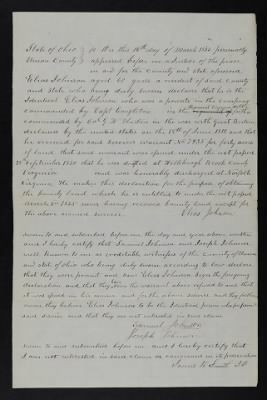 State of Ohio } On this 16th day of March 1855 personally
County } appeared before me a Justice of the peace
in and for the County and State aforesaid
Elias Johnson aged 60 years a resident of said county
and State who being duly sworn declares that he is the
Identical Elias Johnson who was a private in the company
commanded by Capt in the
commanded by Col in the war with great Britain
declared by the united States on the 18th of June 1812 and that
he received for said Services warrant No for forty acres
of land that said warrant was issued under the act passed
28th September 1850 that he was drafted at Brook County
Virginia and was honorably discharged at Norfolk
Virginia He makes this declaration for the purpose of obtaining
the bounty land which he is entitled to under the act passed
March 3rd 1855 never having received bounty land except for
the above named service Elias Johnson
sworn to and subscribed before me the day and year above written
and I hereby certify that Samuel Johnson and Joseph Johnson
well known to me as creditable witnesses of the County of
and State of ohio who being duly sworn according to law declare
that they were present and saw Elias Johnson sign the foregoing
declaration and that they the warrant above referred to and that
it was issued in his name and for the above service and they further
swear they believe Elias Johnson to be the Identical person who
said claim and that they are not interested in said claim
Samuel Johnson
Joseph Johnson
sworn to and subscribed before me and I hereby certify that
I am not interested in said claim or concerned in its prosecution
Smith J P